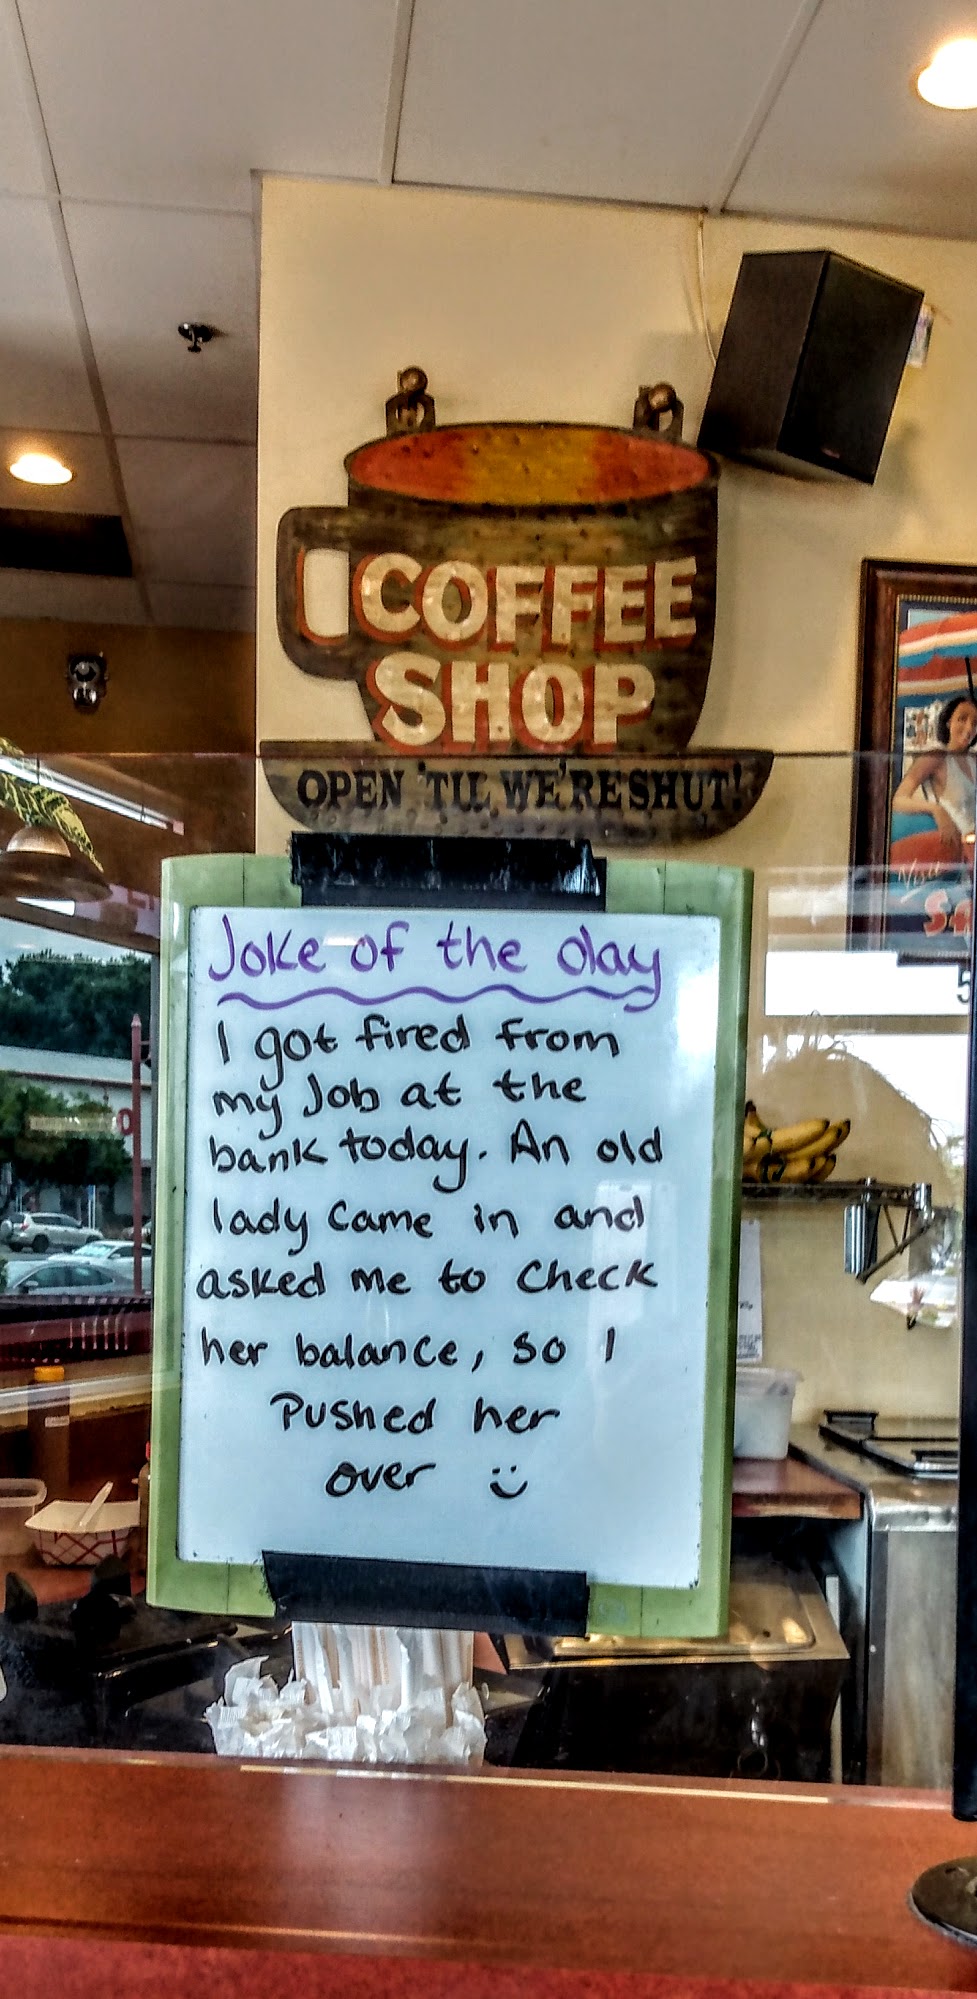 COFFEE
SHOP
OPEN 'TIL WE'RE SHUT!
Joke of the day
I got fired from
my Job at the
bank today. An old
lady came in and
asked me to check
her balance, so I
Pushed her
over :)